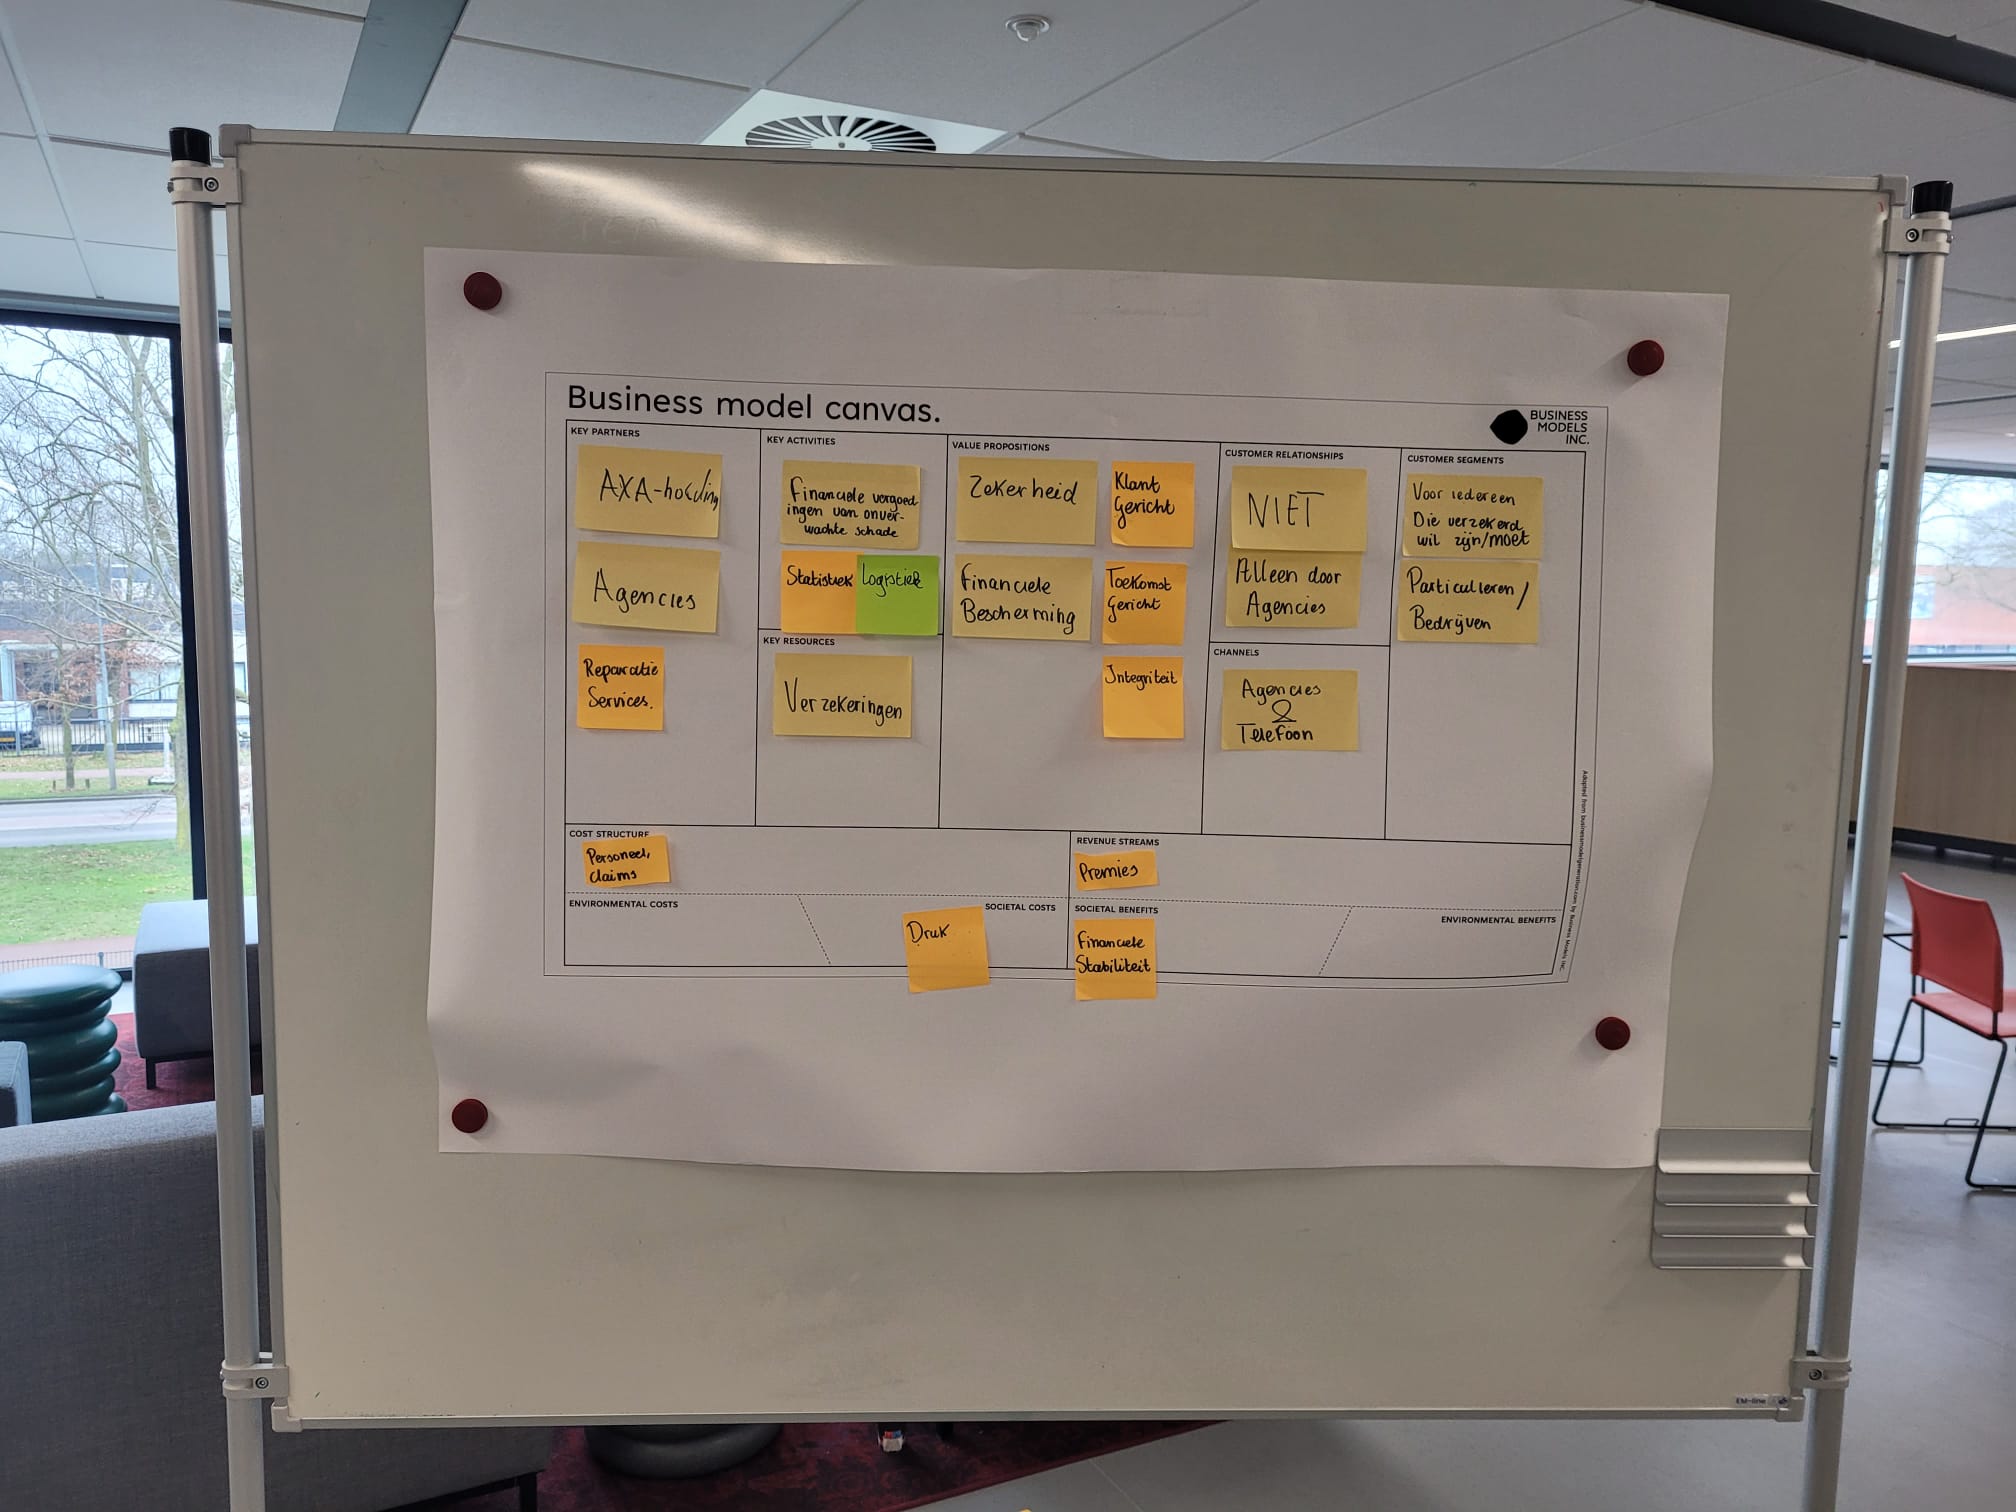 Business model canvas.
BUSINESS
MODELS
INC.
KEY PARTNERS
AXA-holding
Agencies
Reparatie
Services.
KEY ACTIVITIES
Financiele vergoed-
ingen van onver-
wachte schade
Statistiek
Logistiek
KEY RESOURCES
Verzekeringen
VALUE PROPOSITIONS
Zekerheid
Financiele
Bescherming
Klant
Gericht
Toekomst
Gericht
Integriteit
CUSTOMER RELATIONSHIPS
NIET
Alleen door
Agencies
CHANNELS
Agencies
&
Telefoon
CUSTOMER SEGMENTS
Voor iedereen
Die verzekerd
wil zijn/moet
Particulieren/
Bedrijven
COST STRUCTURE
Personeel,
claims
REVENUE STREAMS
Premies
ENVIRONMENTAL COSTS
SOCIETAL COSTS
Druk
SOCIETAL BENEFITS
Financiele
Stabiliteit
ENVIRONMENTAL BENEFITS
Adapted from businessmodelgeneration.com by Business Models INC.
EM-line